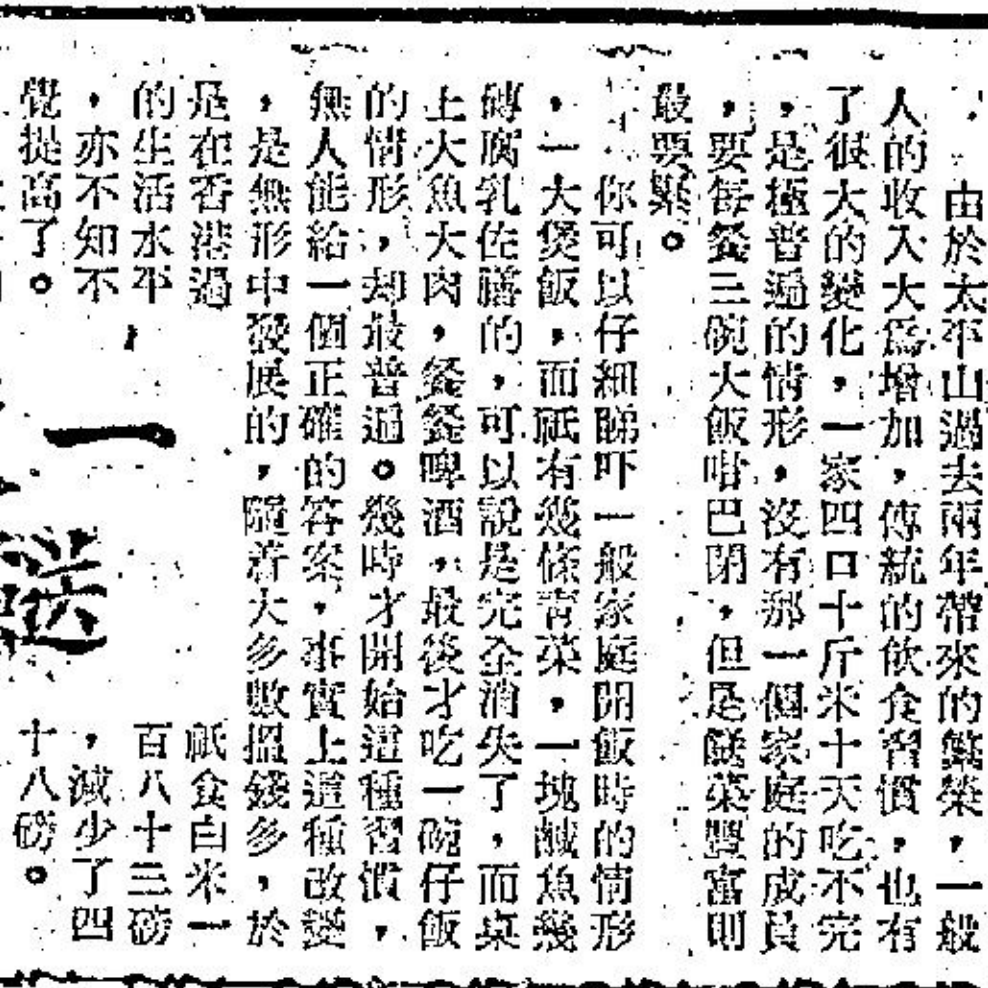 由於太平山過去兩年帶來的繁榮，一般
人的收入大爲增加，傳統的飲食習慣，也有
了很大的變化，一家四口十斤米十天吃不完
，是極普遍的情形，沒有那一個家庭的成員
，要每餐三碗大飯咁巴閉，但是餸菜豐富則
最要緊。
你可以仔細睇吓一般家庭開飯時的情形
，一大煲飯，而祇有幾條靑菜，一塊鹹魚幾
磚腐乳佐膳的，可以說是完全消失了，而桌
上大魚大肉，餐餐啤酒，最後才吃一碗仔飯
的情形，却最普遍。幾時才開始這種習慣，
無人能給一個正確的答案，事實上這種改變
，是無形中發展的，隨着大多數搵錢多，於
是在香港過
的生活水平
，亦不知不
覺提高了。
一
祇食白米一
百八十三磅
，減少了四
十八磅。